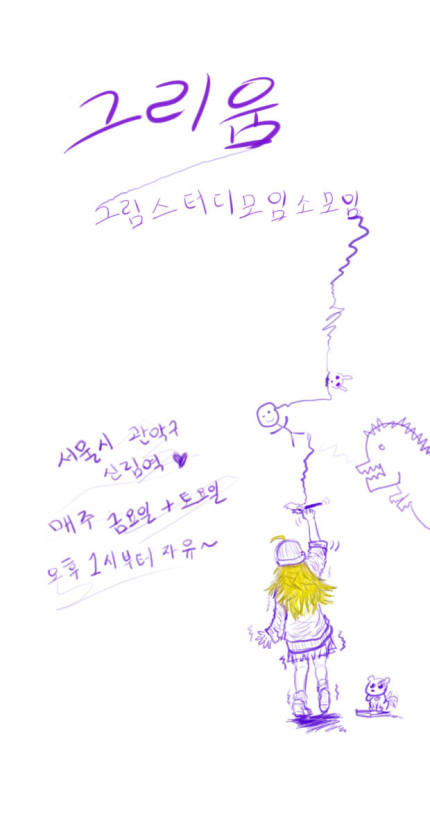 그리움
그림스터디모임소모임
서울시 관악구
신림역 ♥
매주 금요일 + 토요일
오후 1시부터 자유~